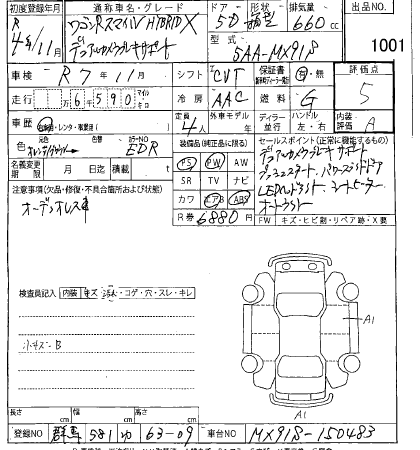 初度登録年月 通称車名・グレード ドア 形状 排気量 出品NO
R 4年/11月 ワゴンRスマイル HYBRID X 5D 箱型 660cc
デュアルカメラブレーキサポート 型式 5AA-MX91S 1001
車検 R7年11月 シフト CVT 保証書 有・無 評価点
走行 6万590 マイル キロ 冷房 AAC 燃料 G 5
車歴 自家用・レンタ・教習車( ) 定員 4人 外車モデル年 ディーラー 並行 ハンドル 左・右 内装評価 A
色 元色 色替 カラーNO EDR
名義変更期限 月 日迄 積載 t
装備品(純正品に限る) セールスポイント(正常に機能するもの)
PS PW AW デュアルカメラブレーキサポート
SR TV ナビ プッシュスタート、パワースライドドア
カワ エアB ABS LEDヘッドライト、シートヒーター
R券 6880円 オートライト
FW キズ・ヒビ割・リペア跡・X要
注意事項(欠品・修復・不具合箇所および状態)
オーディオレス車
検査員記入 内装 キズ・汚れ・コゲ・穴・スレ・キレ
小キズ-B
A1
A1
長さ cm 幅 cm 高さ cm
登録NO 群馬 581 ゆ 63-09 車台NO MX91S-150483